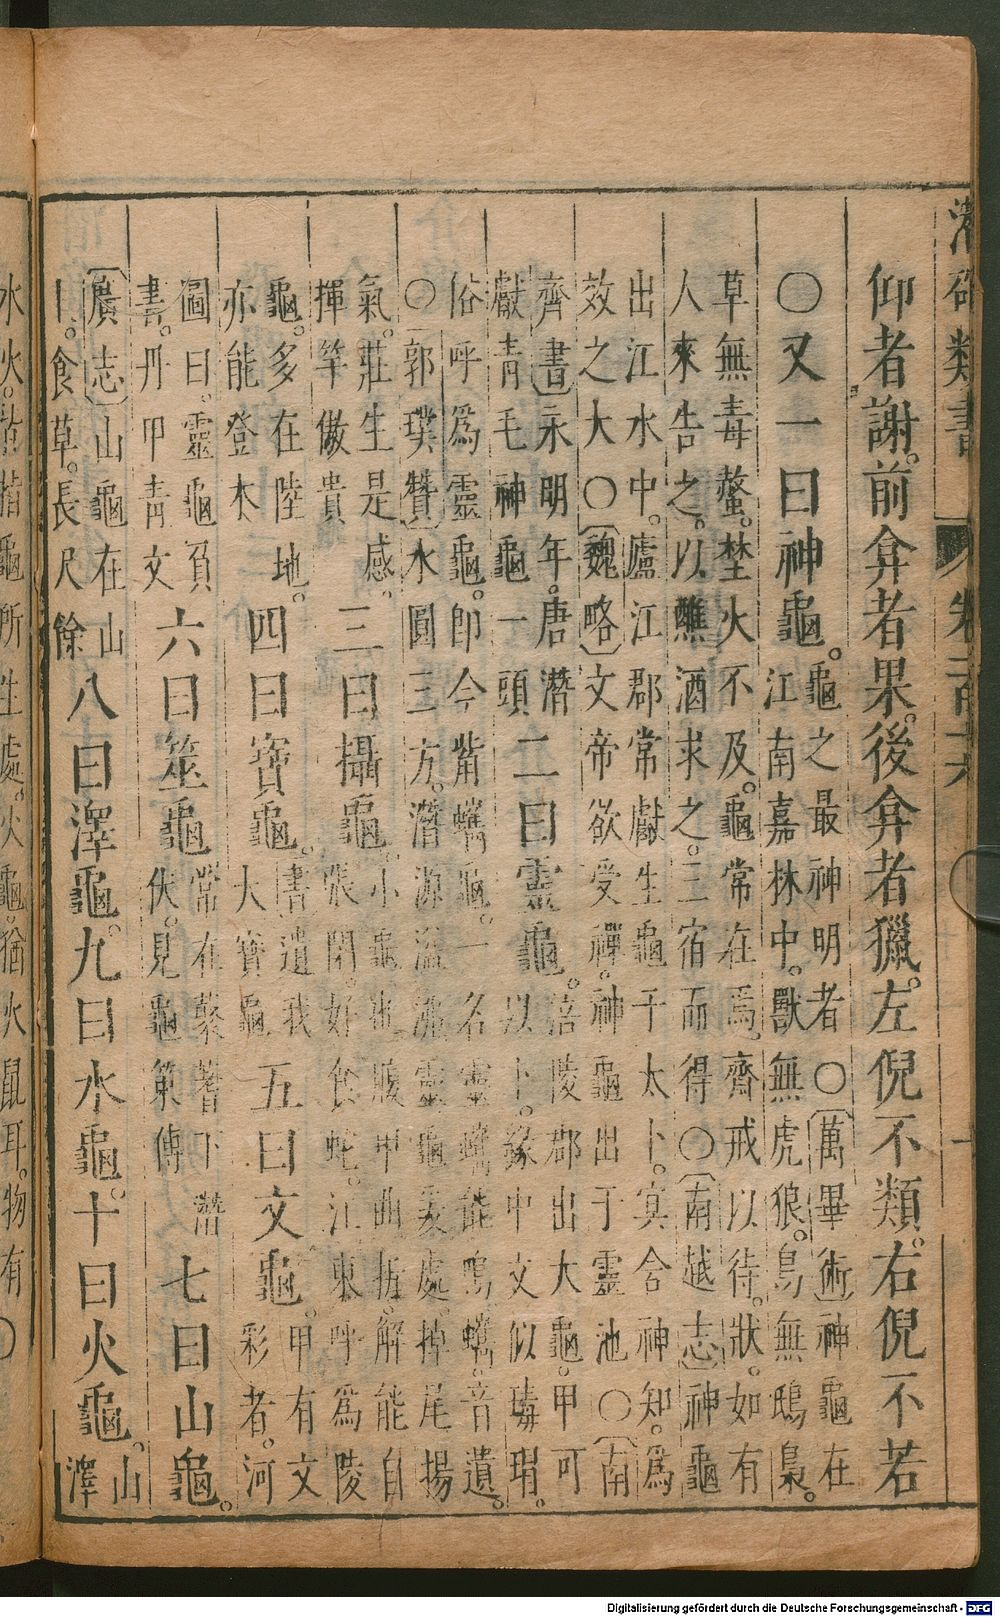 類書
仰者謝。前弇者果。後弇者獵。左倪不類。右倪不若
〇又一曰神龜。
龜之最神明者〇〔萬畢術〕神龜在
江南嘉林中。獸無虎狼。鳥無鴟梟。
草無毒螫。埜火不及。龜常在焉。齊戒以待。狀如有
人來告之。以醮酒求之。三宿而得〇〔南越志〕神龜
出江水中。廬江郡常獻生龜于太卜。冥合神知。為
效之大〇〔魏略〕文帝欲受禪。神龜出于靈池〇〔南
齊書〕永明年。唐潛
獻青毛神龜一頭
二曰靈龜。
涪陵郡出大龜。甲可
以卜。緣中文似瑇瑁。
俗呼為靈龜。卽今觜蠵龜。一名靈蠵能鳴蠵。音遺。
〇〔郭璞贊〕水圓三方。潛源溢流靈龜爰處。掉尾揚
氣。莊生是感。
揮竿傲貴
三曰攝龜。
小龜也腹甲曲折。解能自
張閉。好食蛇。江東呼為陵
龜。多在陸地。
亦能登木
四曰寶龜。
書遺我
大寶龜
五曰文龜。
甲有文
彩者。河
圖曰。靈龜負
書。丹甲青文
六曰筮龜
常在叢蓍下潛
伏。見龜策傳
七曰山龜。
〔廣志〕山龜在山
上。食草。長尺餘
八曰澤龜。九曰水龜。十曰火龜。
山
澤
水火。皆指龜所生處。火龜。猶火鼠耳。物有
Digitalisierung gefördert durch die Deutsche Forschungsgemeinschaft - DFG